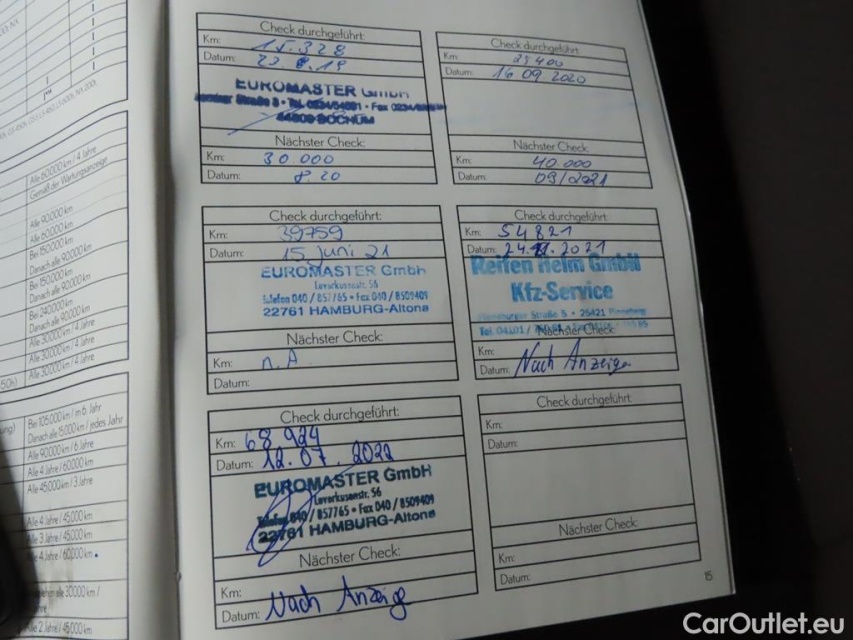 Alle 60.000 km / 4 Jahre
Gemäß der Wartungsanzeige
Alle 90.000 km
Alle 60.000 km
Bei 150.000 km
Danach alle 90.000 km
Bei 150.000 km
Danach alle 90.000 km
Bei 240.000 km
Danach alle 90.000 km
Alle 30.000 km / 4 Jahre
Alle 30.000 km / 4 Jahre
Alle 30.000 km / 4 Jahre
Bei 105.000 km / im 6. Jahr
Danach alle 15.000 km / jedes Jahr
Alle 90.000 km / 6 Jahre
Alle 4 Jahre / 60.000 km
Alle 45.000 km / 3 Jahre
Alle 4 Jahre / 45.000 km
Alle 3 Jahre / 45.000 km
Alle 4 Jahre / 60.000 km
alle 30000 km /
Alle 2 Jahre / 45.000 km
Check durchgeführt:
Km: 15.328
Datum: 22.8.19
EUROMASTER GmbH
44809 BOCHUM
Nächster Check:
Km: 30 000
Datum: 8.20
Check durchgeführt:
Km: 29400
Datum: 16 09 2020
Nächster Check:
Km: 40.000
Datum: 09/2021
Check durchgeführt:
Km: 39759
Datum: 15 Juni 21
EUROMASTER GmbH
Leverkusenstr. 56
Telefon 040 / 857765 • Fax 040 / 8509409
22761 HAMBURG-Altona
Nächster Check:
Km: n.A
Datum:
Check durchgeführt:
Km: 54821
Datum: 24.11.2021
Reifen Helm GmbH
Kfz-Service
Straße 5 • 25421 Pinneberg
Tel. 04101 /
Nächster Check:
Km:
Datum: Nach Anzeige
Check durchgeführt:
Km: 68 924
Datum: 12.07.2022
EUROMASTER GmbH
Leverkusenstr. 56
Telefon 040 / 857765 • Fax 040 / 8509409
22761 HAMBURG-Altona
Nächster Check:
Km:
Datum: Nach Anzeige
Check durchgeführt:
Km:
Datum:
Nächster Check:
Km:
Datum:
15
CarOutlet.eu